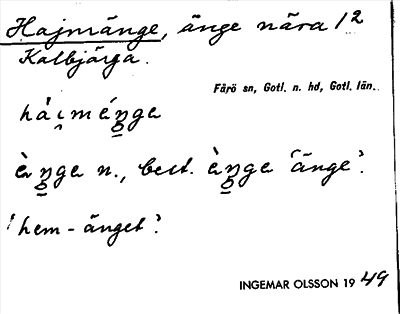 Hajmänge, änge nära 1²
Kalbjärga.
Fårö sn, Gotl. n. hd, Gotl. län.
hài̯méŋge
èŋge n., best. èŋge 'änge'.
'hem-änget'.
INGEMAR OLSSON 1949